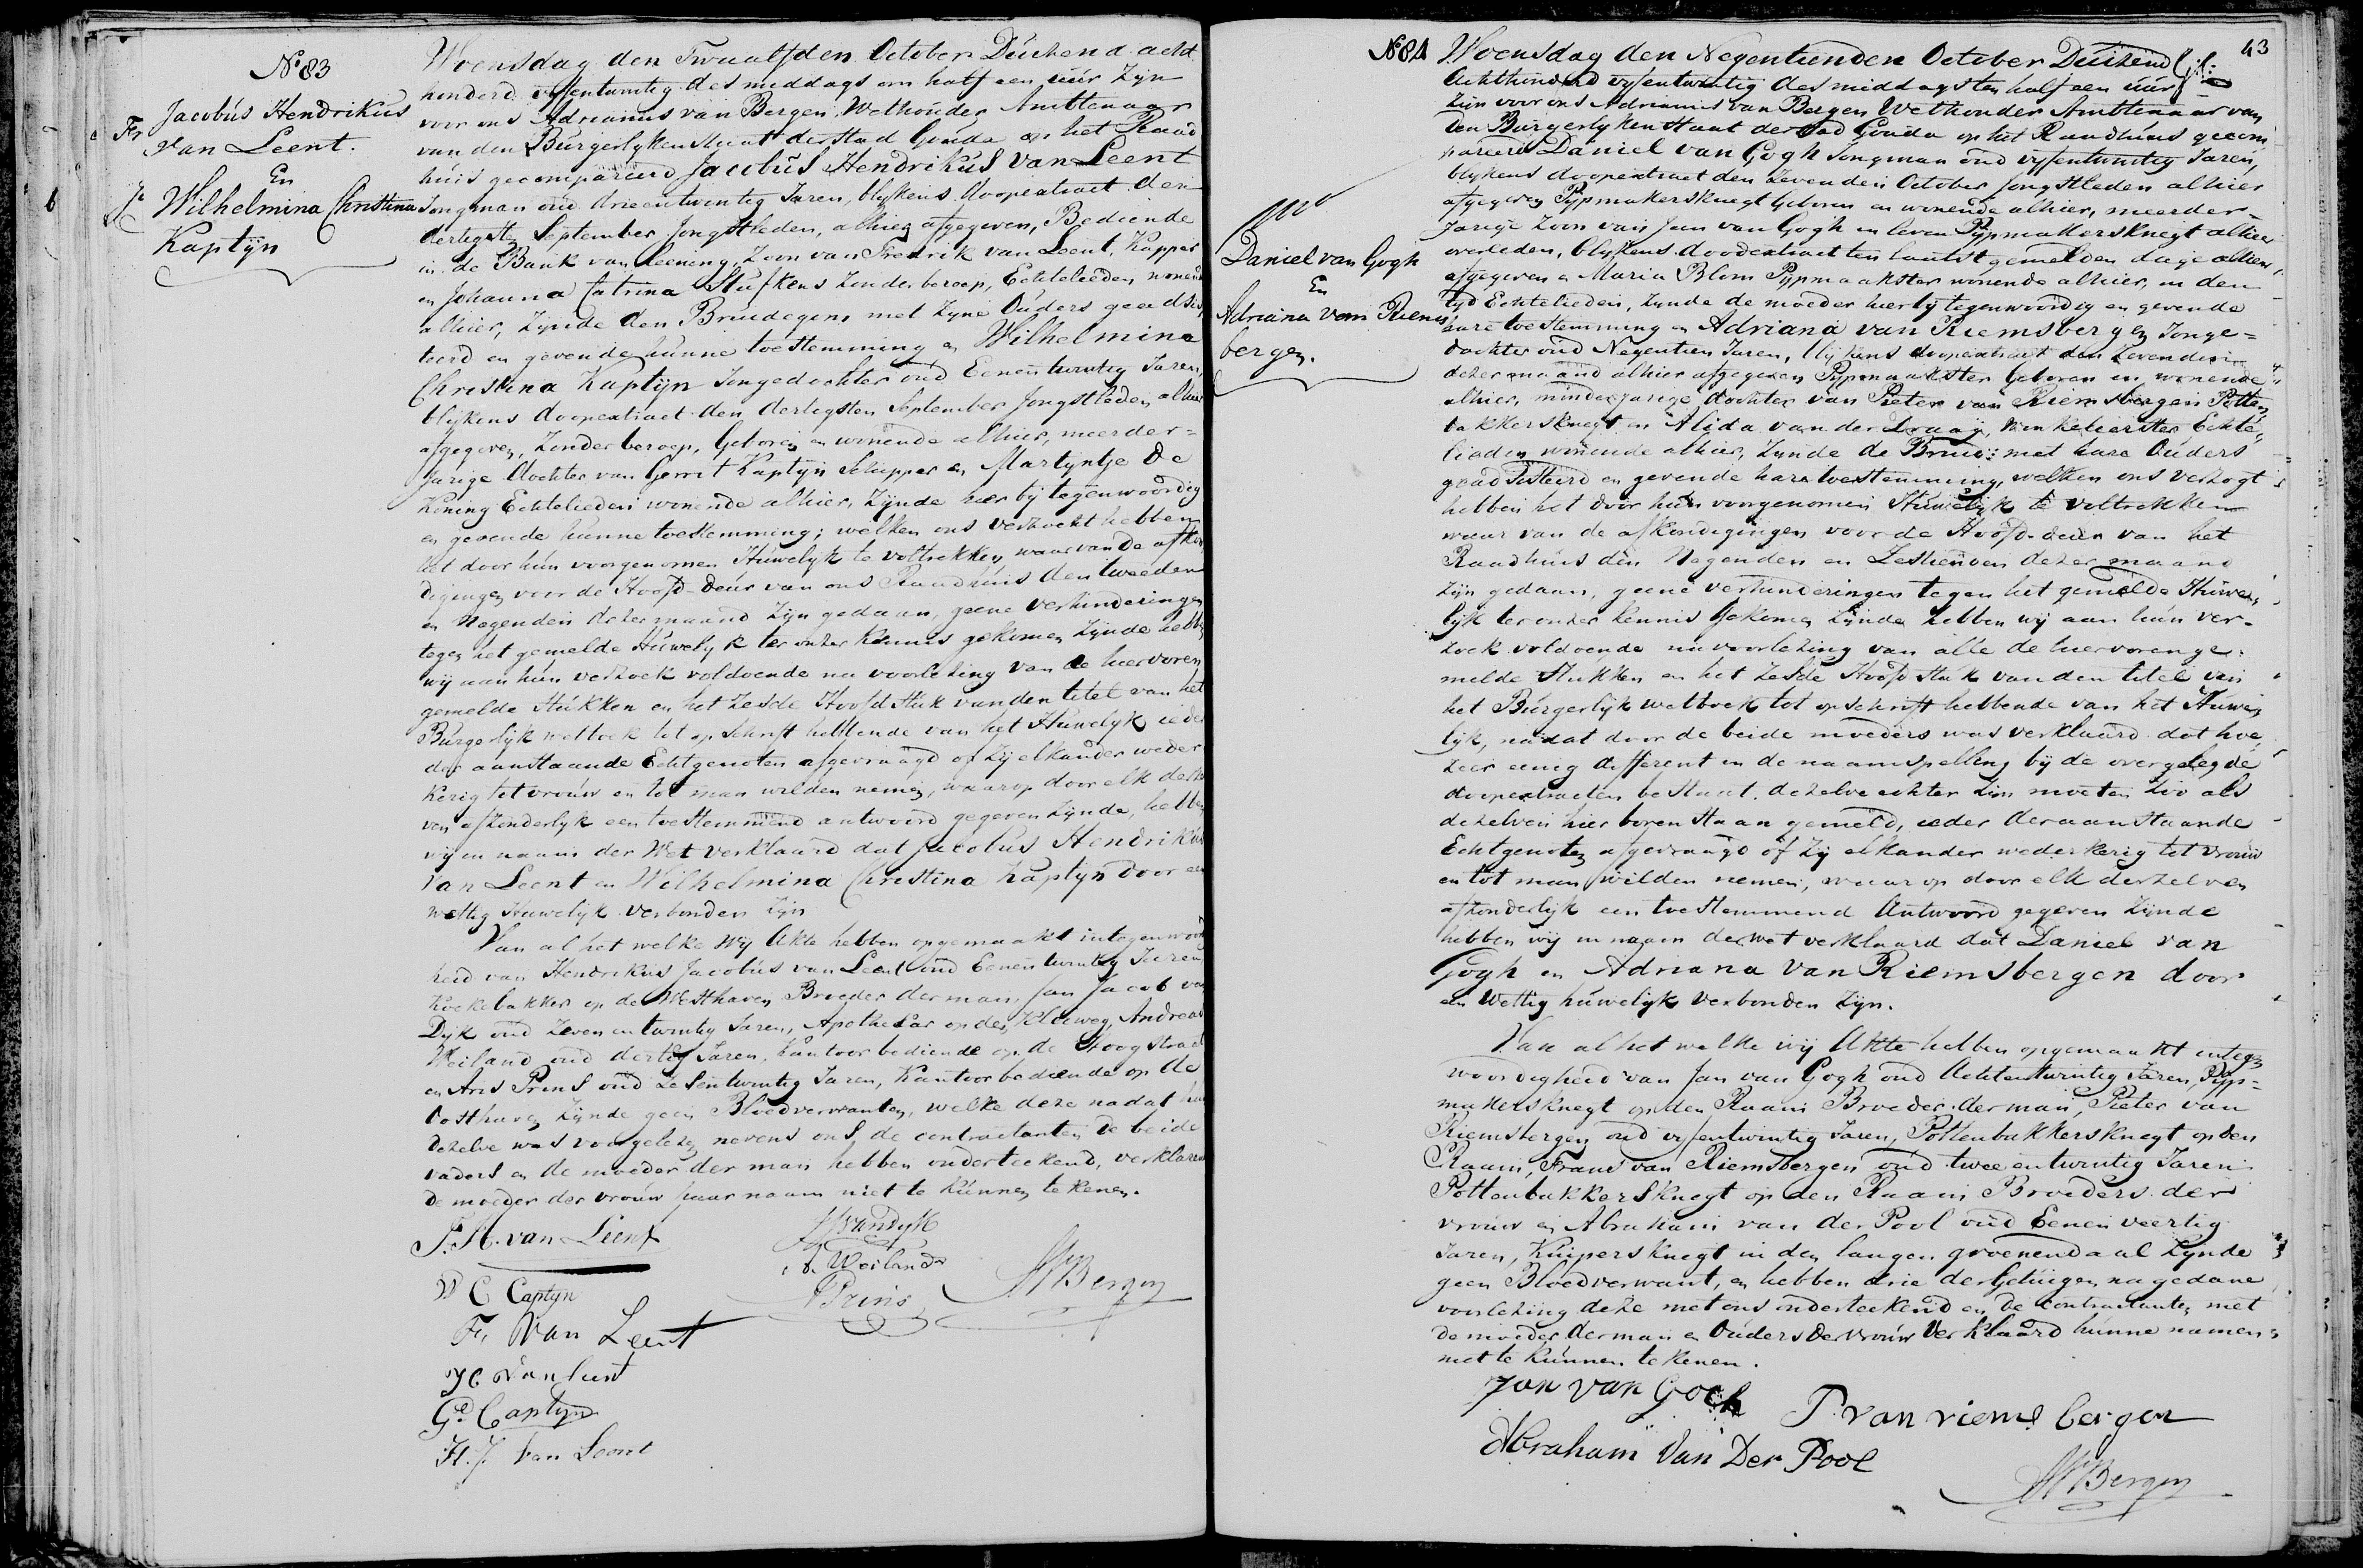 No 83
Jacobus Hendrikus
van Leent.
En
Wilhelmina Christina
Kaptijn
Woensdag den Twaalfden October Duizend acht
honderd vijfentwintig des middags om half een uur Zijn
voor ons Adrianus van Bergen Wethouder Ambtenaar
van den Burgerlyken Staat der Stad Gouda op het Raad
huis gecompareerd Jacobus Hendrikus van Leent
Jongman oud drieentwintig Jaren, blykens doopextract den
dertigsten September Jongstleden, alhier afgegeven, Bediende
in de Bank van Leening, Zoon van Fredrik van Leent, Kapper
en Johanna Catrina Stufkens Zonder beroep, Echtelieden wonende
alhier, Zijnde den Bruidegom met Zijne Ouders geadsis
teerd en gevende hunne toestemming en Wilhelmina
Christina Kaptijn Jongedochter oud Eenentwintig Jaren,
blykens doopextract den dertigsten September Jongstleden alhier
afgegeven, Zonder beroep, Geboren en wonende alhier, meerder=
Jarige dochter van Gerrit Kaptijn Schipper en Martijntje de
Koning Echtelieden wonende alhier, Zijnde hier bij tegenwoordig
en gevende hunne toestemming; welken ons verzocht hebben
het door hun voorgenomen Huwelyk te voltrekken waar van de afkon
digingen voor de Hoofd-deur van ons Raadhuis den tweeden
en Negenden dezer maand Zijn gedaan, geene verhinderingen
tegen het gemelde Huwelyk ter onzer Kennis gekomen Zijnde hebben
wij aan hun verzoek voldoende na voorlezing van de hiervoren
gemelde Stukken en het Zesde Hoofdstuk van den titel van het
Burgerlyk wetboek tot opschrift hebbende van het Huwelyk ieder
der aanstaande Echtgenoten afgevraagd of Zij elkander weder
kerig tot vrouw en tot man wilden nemen, waarop door elk derzel
ven afzonderlyk een toestemmend antwoord gegeven Zijnde, hebben
wij in naam der Wet verklaard dat Jacobus Hendrikus
van Leent en Wilhelmina Christina Kaptijn door een
wettig Huwelyk verbonden Zijn
Van al het welke Wij Akte hebben opgemaakt in tegenwoordig
heid van Hendrikus Jacobus van Leent oud Eenentwintig Jaren
Koekebakker op de Westhaven Broeder der man, Jan Jacob van
Dijk oud Zevenentwintig Jaren, Apothekar op den Kleiweg, Andreas
Weiland oud dertig Jaren, Kantoorbediende op de Hoogstraat
en Aris Prins oud Zesentwintig Jaren, Kantoorbediende op de
Oosthaven Zijnde geen Bloedverwanten, welke deze nadat hun
dezelve was voorgelezen nevens ons, de contractanten de beide
vaders en de moeder der man hebben onderteekend, verklarende
de moeder der vrouw haar naam niet te kunnen tekenen.
J. H. van Leent
W C Captyn
Fr van Leent
J C van Leent
Gt Captyn
H. J. van Leent
JJ van Dyk
A. Weiland
A Prins
AVBergen
43
No 84
Daniel van Gogh
En
Adriana van Riems
bergen.
Woensdag den Negentienden October Duizend
Achthonderd vyfentwintig des middags ten half een uur
Zijn voor ons Adrianus van Bergen Wethouder Ambtenaar van
den Burgerlyken Staat der Stad Gouda op het Raadhuis gecom
pareerd Daniel van Gogh Jongman oud vyfentwintig Jaren,
blykens doopextract den Zevenden October Jongstleden alhier
afgegeven Pypmakersknegt Geboren en wonende alhier, meerder-
Jarige Zoon van Jan van Gogh in leven Pypmakersknegt alhier
overleden, blykens doodextract ten laatstgemelden dage alhier
afgegeven en Maria Blom Pypmaakster wonende alhier, in der
tyd Echtelieden, Zynde de moeder hier bij tegenwoordig en gevende
hare toestemming en Adriana van Riemsbergen Jonge=
dochter oud Negentien Jaren, blykens doopextract den Zevenden
dezer maand alhier afgegeven Pypmaakster Geboren en wonende
alhier, minderjarige dochter van Pieter van Riemsbergen Potten
bakkersknegt en Alida van der Draay, Winkelierster Echte
lieden wonende alhier, Zijnde de Bruid met hare Ouders
geadsisteerd en gevende hare toestemming, welken ons verzogt
hebben het door hun voorgenomen Huwelyk te voltrekken
waar van de afkondigingen voor de Hoofd-deur van het
Raadhuis den Negenden en Zestienden dezer maand
Zijn gedaan, geene verhinderingen tegen het gemelde Huwe
lyk ter onzer kennis gekomen Zijnde hebben wij aan hun ver-
zoek voldoende na voorlezing van alle de hiervorenge-
melde Stukken en het Zesde Hoofdstuk van den titel van
het Burgerlyk wetboek tot opschrift hebbende van het Huwe
lyk, nadat door de beide moeders was verklaard dat hoe
zeer eenig different in de naamspelling bij de overgelegde
doopextracten bestaat, dezelve echter Zijn moeten Zoo als
dezelven hier boven staan gemeld, ieder der aanstaande
Echtgenoten afgevraagd of Zij elkander wederkerig tot vrouw
en tot man wilden nemen, waar op door elk derzelven
afzonderlyk een toestemmend Antwoord gegeven Zijnde
hebben wij in naam der wet verklaard dat Daniel van
Gogh en Adriana van Riemsbergen door
een Wettig huwelyk verbonden Zijn.
Van al het welke wij Akte hebben opgemaakt in tegen
woordigheid van Jan van Gogh oud Achtentwintig Jaren, Pyp=
makersknegt op den Raam Broeder der man, Pieter van
Riemsbergen oud vyfentwintig Jaren, Pottenbakkersknegt op den
Raam, Frans van Riemsbergen oud twee entwintig Jaren
Pottenbakkersknegt op den Raam Broeders der
vrouw en Abraham van der Pool oud Eenenveertig
Jaren, Kuipersknegt in den langen groenendaal Zynde
geen Bloedverwant, en hebben drie der Getuigen na gedane
voorlezing deze met ons onderteekend en de contractanten met
de moeder der man en Ouders der vrouw Verklaard hunne namen
niet te kunnen tekenen.
Jan van Goch
P. van riems bergen
Abraham Van Der Pool
AVBergen